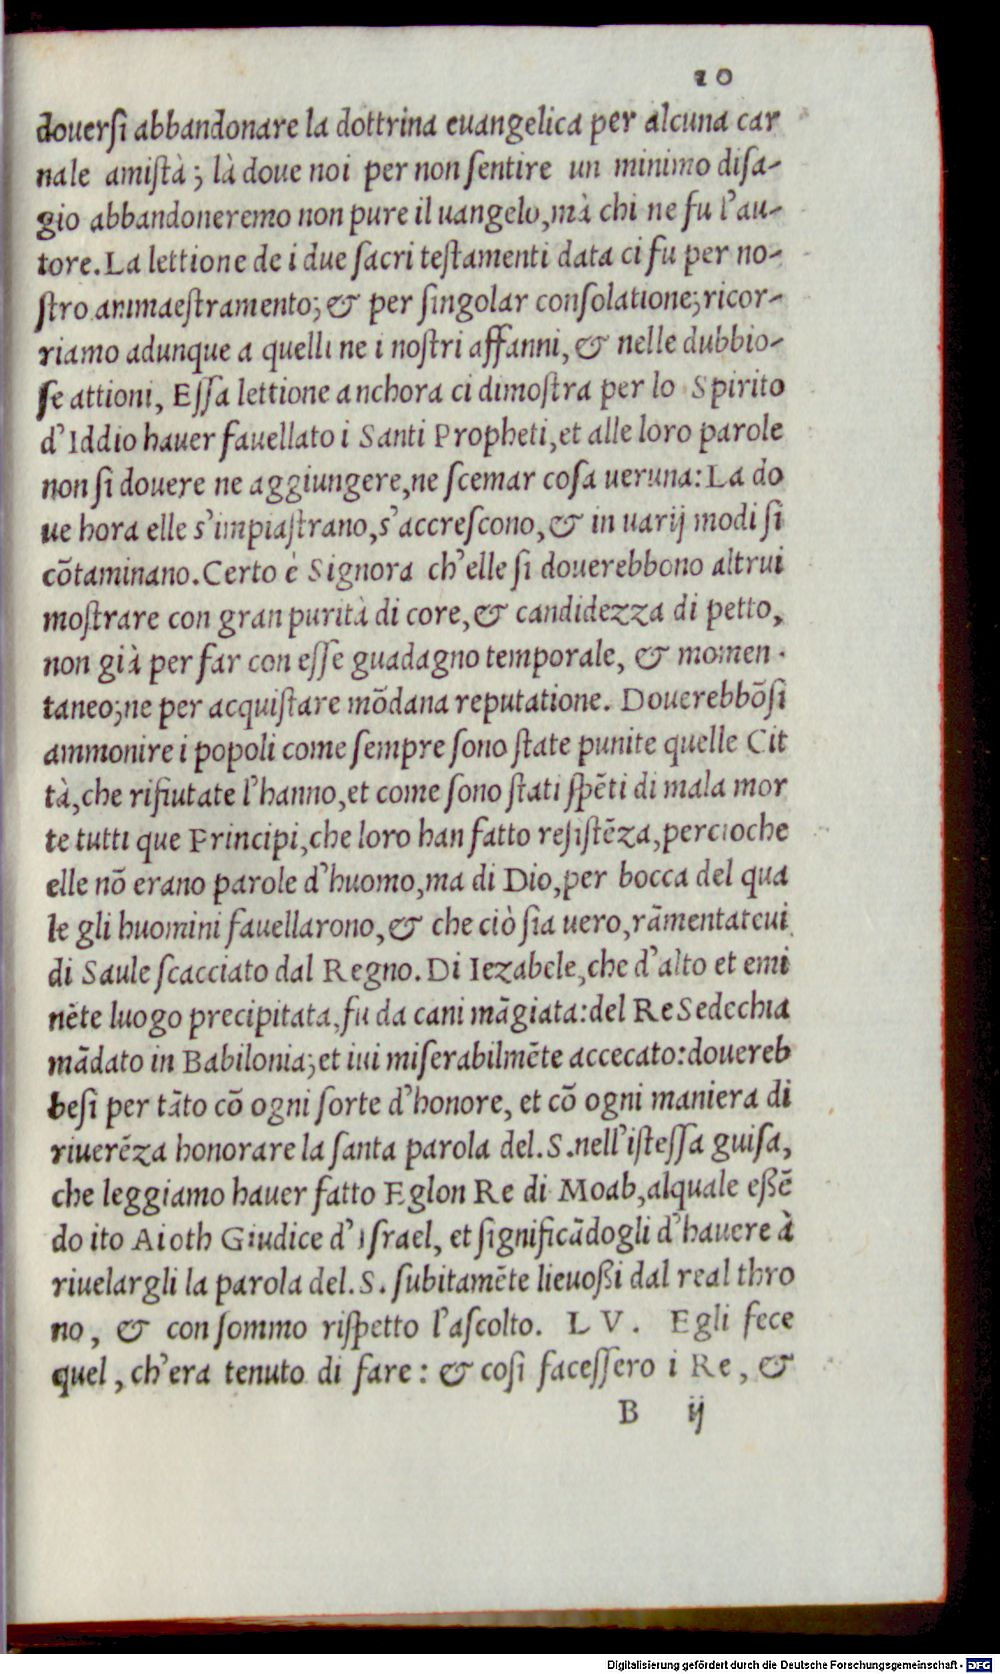 10
douersi abbandonare la dottrina euangelica per alcuna car
nale amistà; là doue noi per non sentire un minimo disa-
gio abbandoneremo non pure il uangelo, mà chi ne fu l'au-
tore. La lettione de i due sacri testamenti data ci fu per no-
stro ammaestramento; & per singolar consolatione; ricor-
riamo adunque a quelli ne i nostri affanni, & nelle dubbio-
se attioni, Essa lettione anchora ci dimostra per lo Spirito
d'Iddio hauer fauellato i Santi Propheti, et alle loro parole
non si douere ne aggiungere, ne scemar cosa ueruna: La do
ue hora elle s'impiastrano, s'accrescono, & in uarij modi si
cõtaminano. Certo è Signora ch'elle si douerebbono altrui
mostrare con gran purità di core, & candidezza di petto,
non già per far con esse guadagno temporale, & momen-
taneo; ne per acquistare mõdana reputatione. Douerebbõsi
ammonire i popoli come sempre sono state punite quelle Cit
tà, che rifiutate l'hanno, et come sono stati spẽti di mala mor
te tutti que Principi, che loro han fatto resistẽza, percioche
elle nõ erano parole d'huomo, ma di Dio, per bocca del qua
le gli huomini fauellarono, & che ciò sia uero, rãmentateui
di Saule scacciato dal Regno. Di Iezabele, che d'alto et emi
nẽte luogo precipitata, fu da cani mãgiata: del Re Sedechia
mãdato in Babilonia; et iui miserabilmẽte accecato: douereb
besi per tãto cõ ogni sorte d'honore, et cõ ogni maniera di
riuerẽza honorare la santa parola del. S. nell'istessa guisa,
che leggiamo hauer fatto Eglon Re di Moab, alquale eßẽ
do ito Aioth Giudice d'Israel, et significãdogli d'hauere à
riuelargli la parola del. S. subitamẽte lieuoßi dal real thro
no, & con sommo rispetto l'ascolto. L V. Egli fece
quel, ch'era tenuto di fare: & cosi facessero i Re, &
B ij
Digitalisierung gefördert durch die Deutsche Forschungsgemeinschaft - DFG